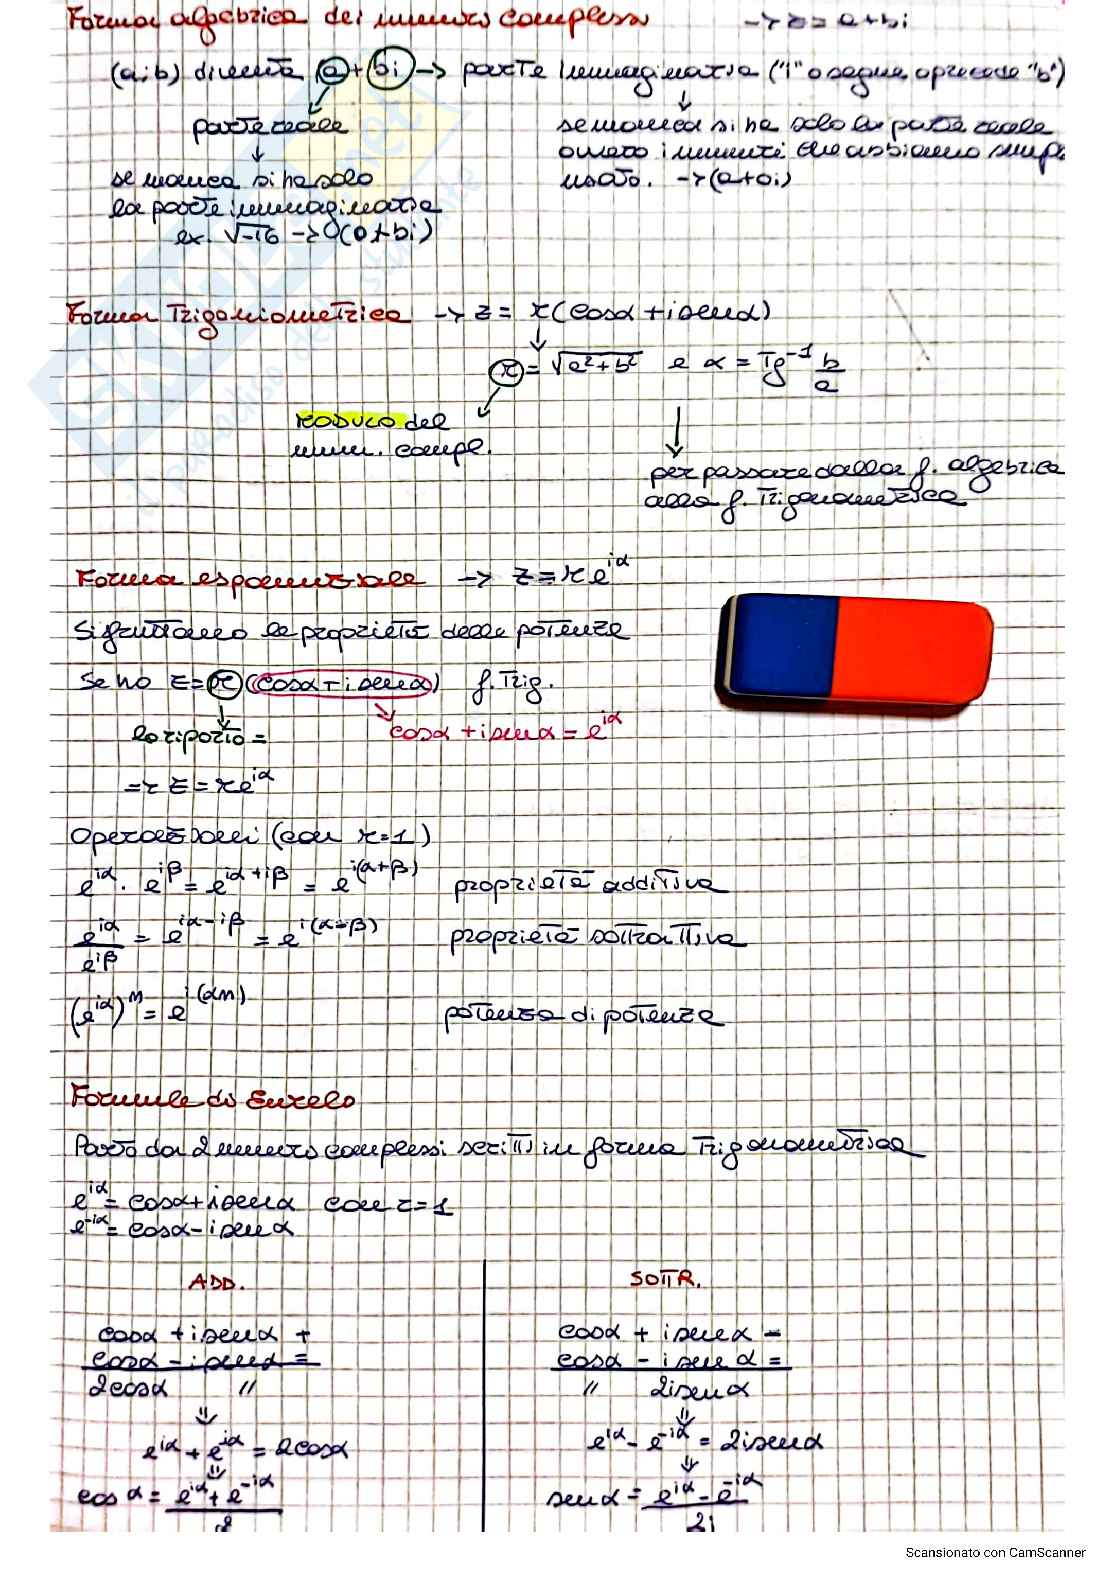 Forma algebrica dei numeri complessi → z = a+bi
(a;b) diventa a + bi → parte immaginaria ("i" o segue o precede "b")
parte reale
se manca si ha solo la parte reale
ovvero i numeri che abbiamo sempre
usato. → (a+0i)
se manca si ha solo
la parte immaginaria
ex. √-16 → (0+bi)
Forma Trigonometrica → z = r(cosα + i senα)
r = √a²+b² e α = Tg⁻¹ b/a
modulo del
num. compl.
per passare dalla f. algebrica
alla f. Trigonometrica
Forma esponenziale → z = r e^iα
Si sfruttano le proprietà delle potenze
Se ho z = r (cosα + i senα) f. Trig.
lo riporto =
cosα + i senα = e^iα
=> z = r e^iα
Operazioni (con r=1)
e^iα · e^iβ = e^iα+iβ = e^i(α+β) proprietà additiva
e^iα/e^iβ = e^iα-iβ = e^i(α-β) proprietà sottrattiva
(e^iα)^n = e^i(αn) potenza di potenza
Formule di Eurelo
Parto da 2 numeri complessi scritti in forma Trigonometrica
e^iα = cosα + i senα con r=1
e^-iα = cosα - i senα
ADD.
cosα + i senα +
cosα - i senα =
2cosα //
e^iα + e^-iα = 2cosα
cos α = e^iα + e^-iα / 2
SOTTR.
cosα + i senα -
cosα - i sen α =
// 2i senα
e^iα - e^-iα = 2i senα
senα = e^iα - e^-iα / 2i
Scansionato con CamScanner